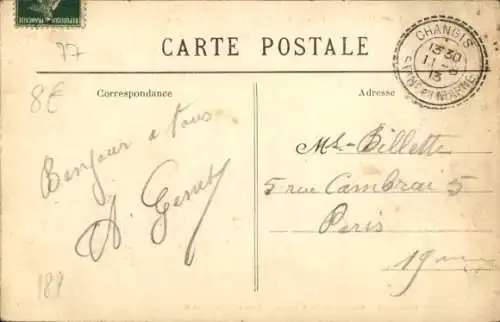 77
8€
CARTE POSTALE
CHANGIS
13 30
11 - 8
13
SEINE-ET-MARNE
Correspondance
Adresse
Bonjour a tous
A. Genet
Ms- Billette
5 rue Cambrai 5
Paris
19eme
188